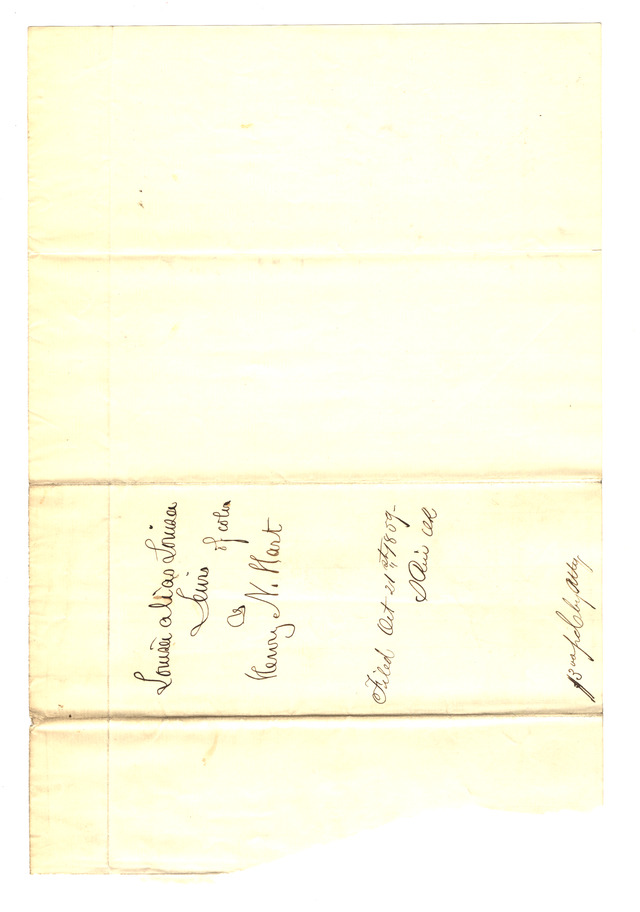 Louisa alias Louisa
Lewis of color
vs
Henry N. Hart
Filed Oct 21st 1859-
Clk
Atty